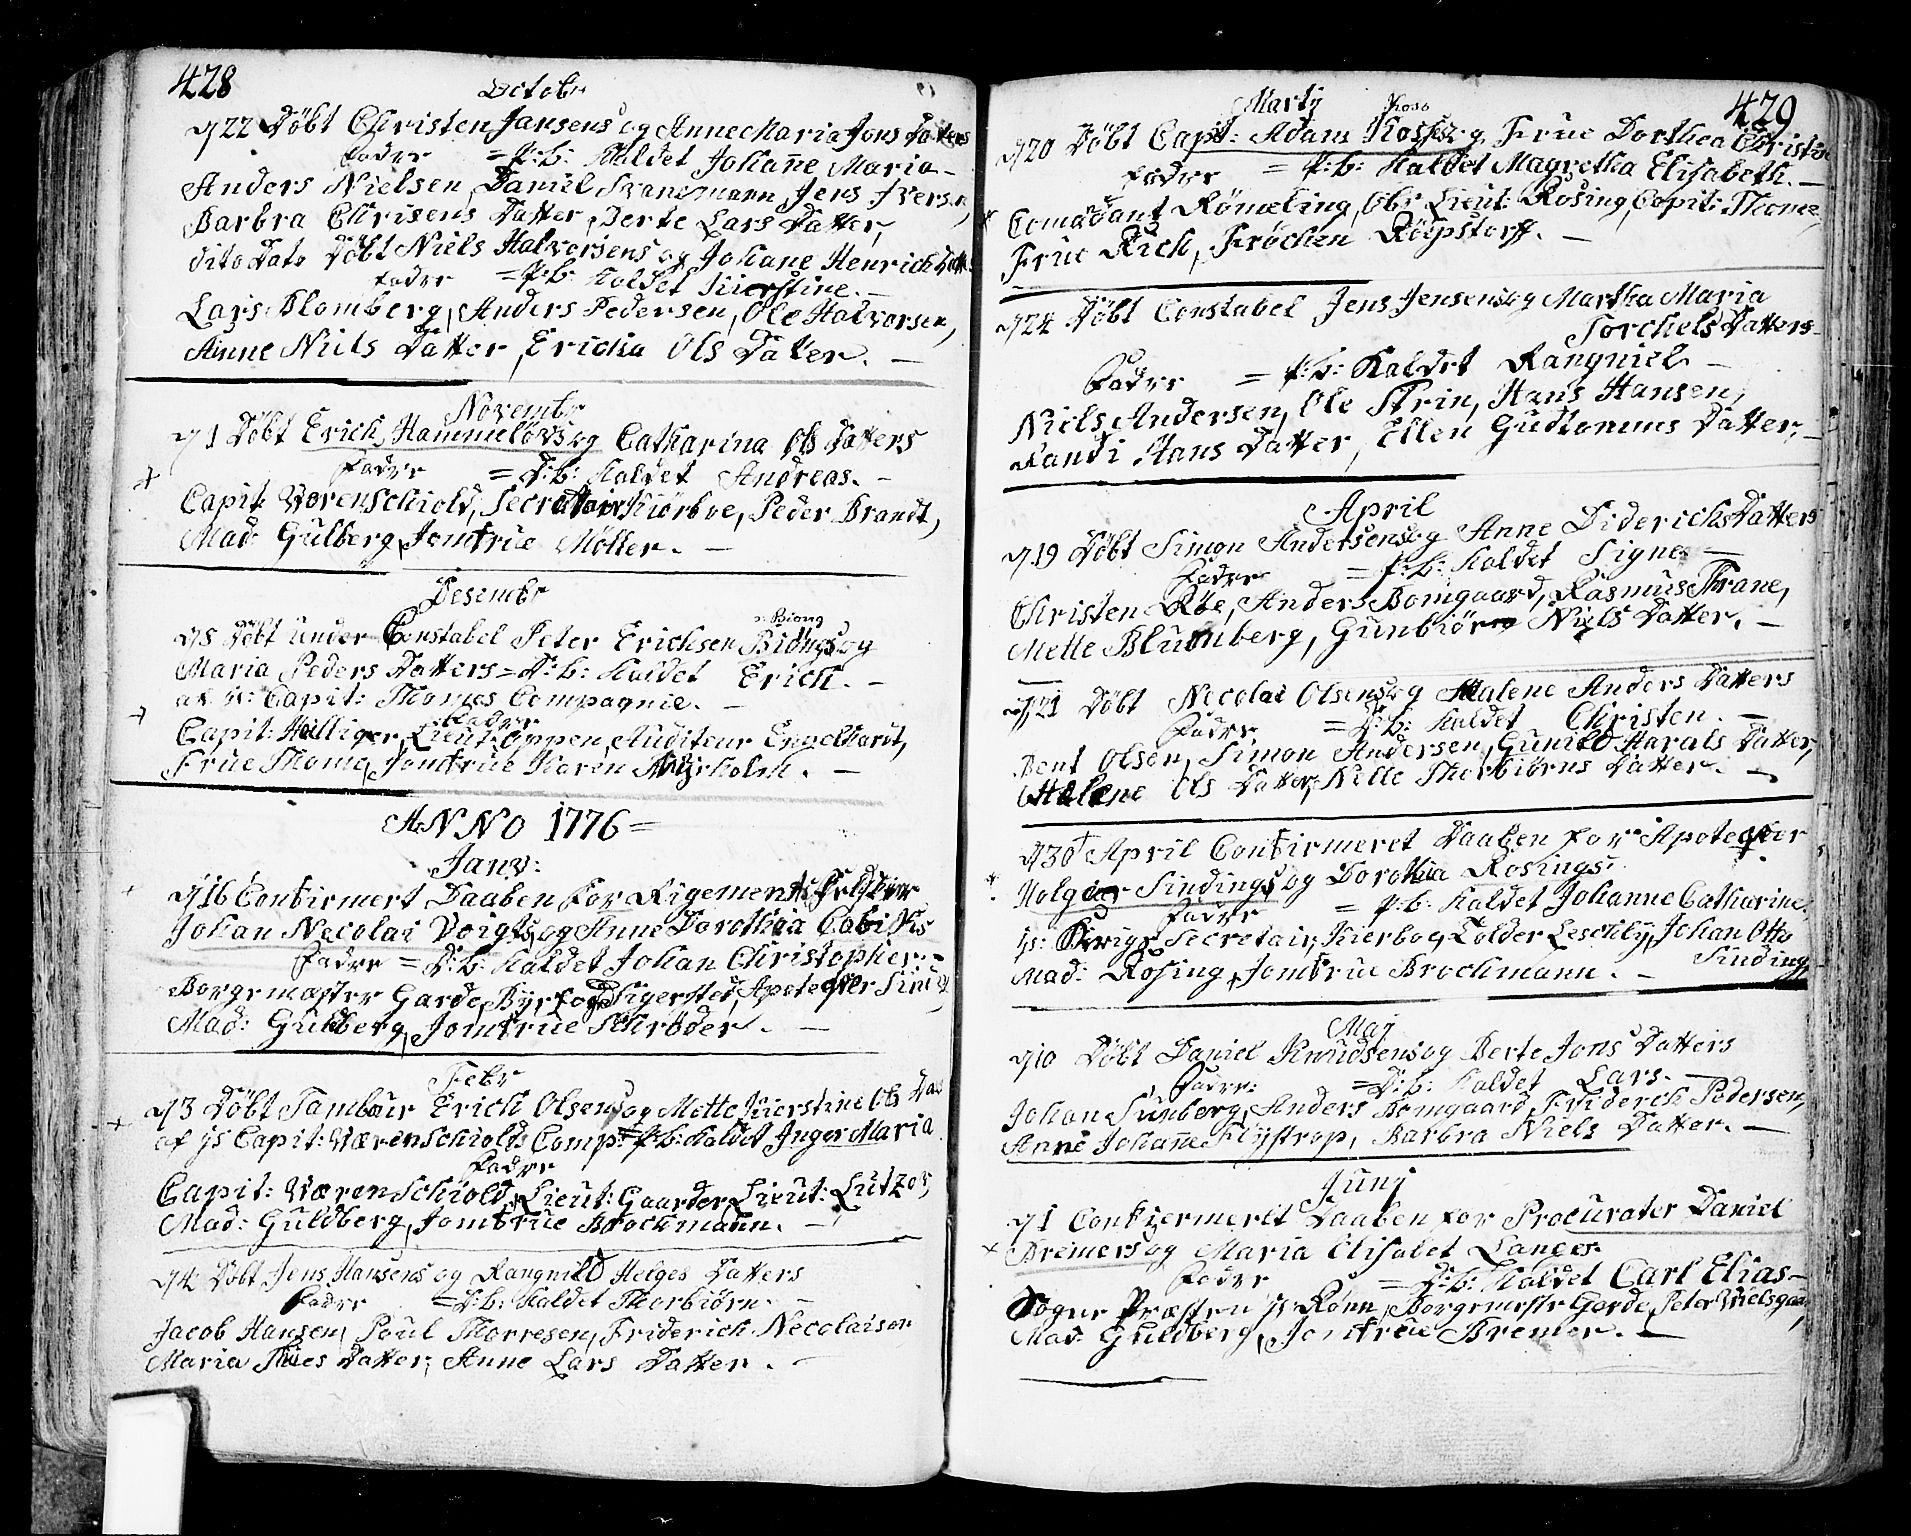 428
Octobr
d 22 Döbt Christen Jansens og Anne Maria Jons Datters
Fadre = P:b: Kaldet Johane Maria –
Anders Nielsen, Daniel Svanemann, Jens Iversen,
Barbra Chrisens Datter, Berte Lars Datter,
dito Dato Döbt Niels Halvorsens og Johane Henrichs Datt
Fadre = P:b: Kaldet Kierstine. –
Lars Blomberg, Anders Pedersen, Ole Halvorsen,
Anne Niels Datter, Ericha Ols Datter. –
Novembr
d 1 Döbt Erich Hammelövs og Catharina Ols Datters
Fadre = D:b: Kaldet Andreas. –
Capit: Værenschiold, Secretair Kiörboe, Peder Brandt,
Mad: Gulberg, Jomfrue Möller. –
Desembr
Biong
d 8 Döbt Under Constabel Peter Erichsen Biongs og
Maria Peders Datters = D:b: Kaldet Erich. –
af Capit: Thomes Compagnie. –
Fadre
Capit: Hilliger, Lieut: Oppen, Auditeur Engelhardt,
Frue Thome, Jomfrue Karen Myrholm. –
ANNO 1776 =
Janv:
d 16 Confirmert Daaben for Rigements Feldskier
Johan Necolai Voigts og Anne Dorothea
Fadre = D:b: Kaldet Johan Christopher. –
Borgemæster Garde, Byefoged Sigersted, Apoteqver Sind
Mad: Guldberg, Jomfrue Schröder. –
Febr
d 3 Döbt Tambour Erich Olsens og Mette Kierstine Ols Dat
af Capit: Værenschiolds Comp: = P:b: Kaldet Inger Maria
Fadre
Capit: Værenschiold, Lieut: Gaarder, Lieut: Lützov,
Mad: Guldberg, Jomfrue Brockmann. –
d 4 Döbt Jens Hansens og Rangnild Helges Datters
Fadre = D:b: Kaldet Thorbiörn. –
Jacob Hansen, Poul Thorresen, Friderich Necolaisen
Maria Thies Datter, Anne Lars Datter. –
429
Martj
d 20 Döbt Capit: Adam og Frue Dorthea Christin
Fadre = P:b: Kaldet Magretha Elisabeth. –
Comadant Römeling, Obr: Lieut: Rosing, Capit: Thome,
Frue Rich, Fröchen Röepstorff. –
d 24 Döbt Constabel Jens Jensens og Martha Maria
Torchels Datters
Fadre = P:b: Kaldet Rangniel –
Niels Andersen, Ole Strin, Hans Hansen,
Randi Hans Datter, Ellen Gudtorms Datter. –
April
d 19 Döbt Simon Andersens og Anne Diderichs Datters
Fadre = P:b: Kaldet Signe –
Christen Röe, Anders Bomgaard, Rasmus Thrane,
Mette Blumberg, Gunbiör Niels Datter. –
d 21 Döbt Necolai Olsens og Malene Anders Datters
Fadre = D:b: Kaldet Christen. –
Bent Olsen, Simon Andersen, Gunild Harals Datter,
Malene Ols Datter, Nille Thorbiörns Datter. –
d 30 April Confirmeret Daaben for Apoteqver
Holger Sindings og Dorothia Rosings
Fadre = P:b: Kaldet Johanne Catharine
Secretair Kierboe, Tolder Leschly, Johan Otto
Sinding
Mad: Rosing, Jomfrue Brockmann. –
Maj
d 10 Döbt Daniel Knudsens og Berte Jons Datters
Fadre: = D:b: Kaldet Lars. –
Johan Sunberg, Anders Bomgaard, Friderch Pedersen,
Anne Johanne Flystrop, Barbra Niels Datter. –
Junj
d 1 Confiermerit Daaben for Procurater Daniel
Bremers og Maria Elisabet Langes
Fadre = D:b: Kaldet Carl Elias –
Sogne Præsten Rönn, Borgemestr Garde, Peter Nielsgaa,
Mad: Guldberg, Jomfrue Bremer. –